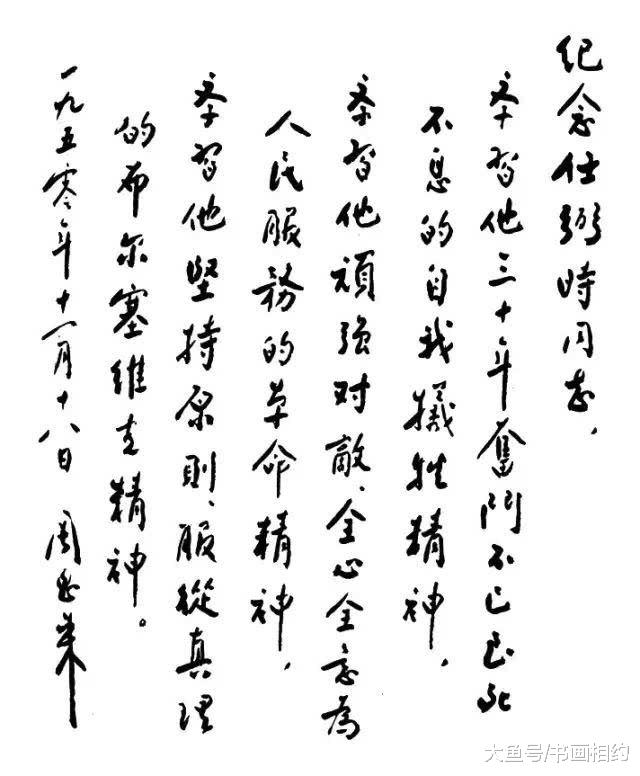 纪念任弼時同志，
学習他三十年奮鬥不已至死
不息的自我犠牲精神，
学習他頑强对敵、全心全意為
人民服務的革命精神，
学習他坚持原則、服從真理
的布尔塞維克精神。
一九五零年十一月十八日 周恩来
大鱼号/书画相约